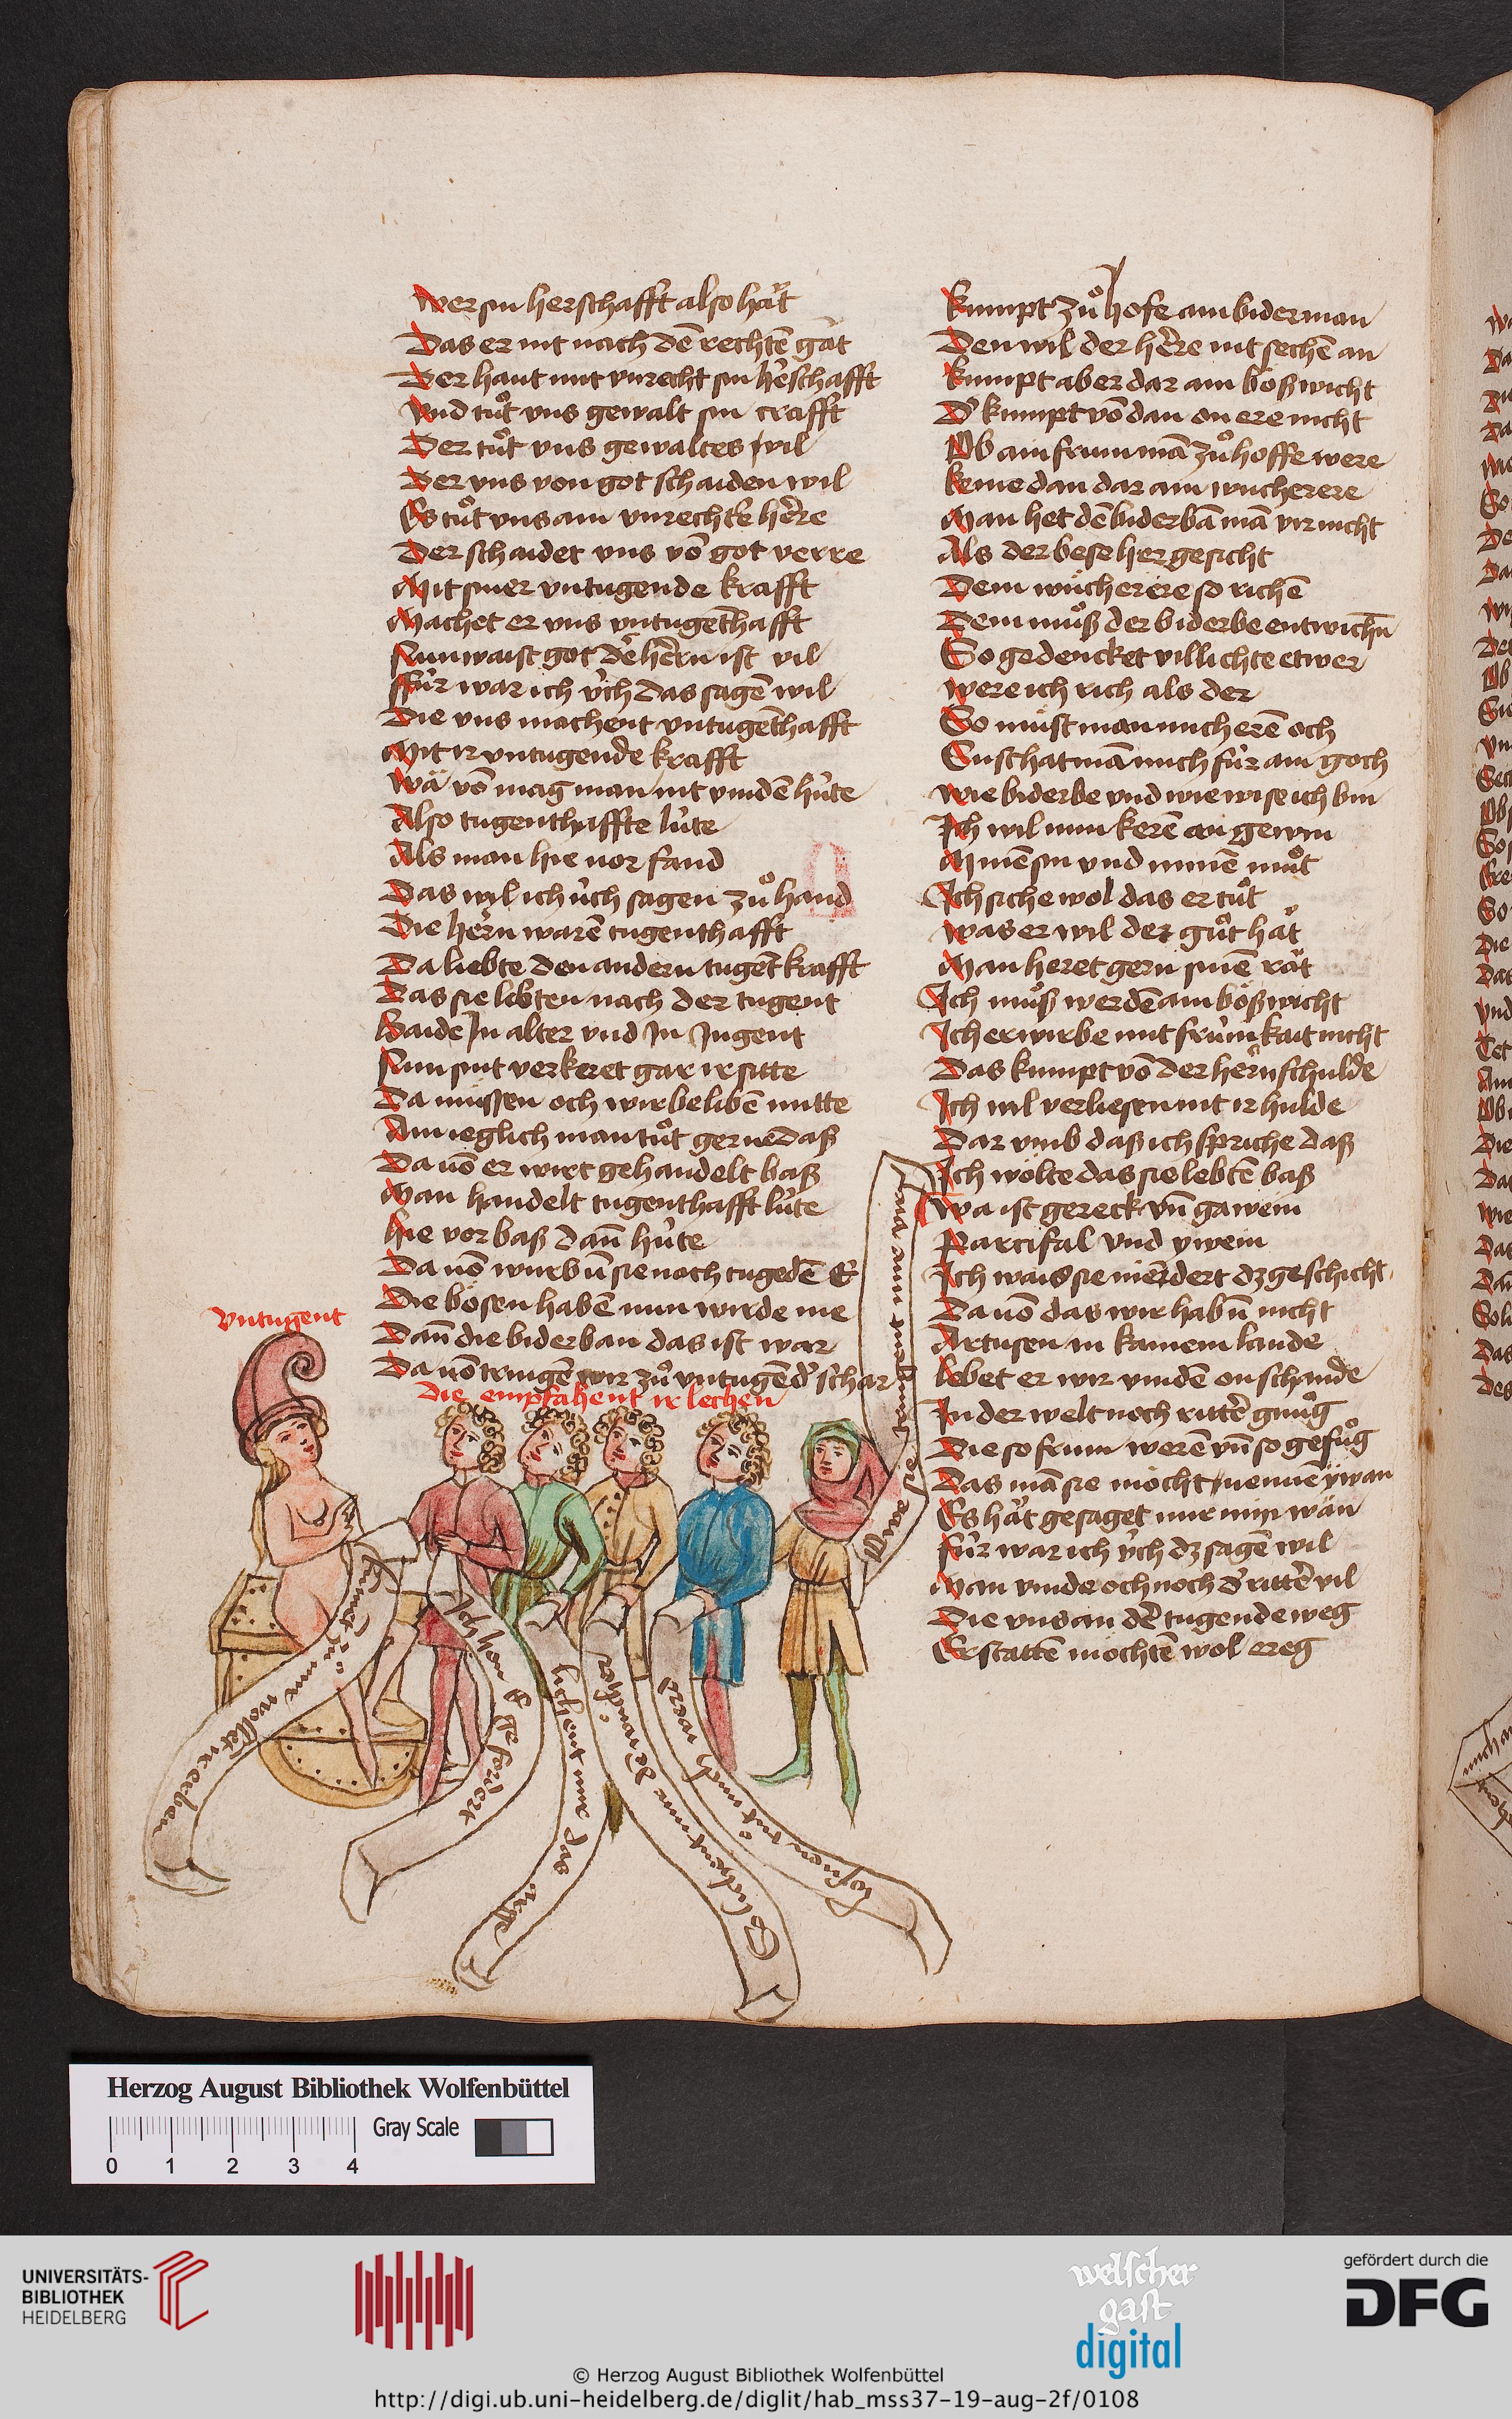 wer sin herschafft also hät
Das er nit nach dē rechtē gät
Der haut mit vnrecht sin he᷑schafft
Vnd tuͦt vns gewalt sin crafft
Der tuͦt vns gewaltes vil
Der vns von got schaiden wil
Es tuͦt vns ain vnrechte he᷑re
Der schaidet vns vō got verre
Mit siner vntugende krafft
Machet er vns vntugēthafft
Nun waist got de᷑ he᷑rn ist vil
ffür war ich üch das sagē wil
Die vns machent vntugēthafft
Mit ir vntugende krafft
Wä vō mag man nit vindē hüte
Also tugenthaffte lüte
Als man hie vor fand
Das wil ich üch sagen zuͦ hand
Die he᷑rn warē tugenthafft
Da liebte den andern tugēt krafft
Das sie lebten nach der tugent
Baide Jn alter vnd Jn Jugent
Nun sint verkeret gar ir sitte
Da müssen och wir belibē mitte
Ain ieglich man tuͦt gerne daß
Da uō er wirt gehandelt baß
Man handelt tugenthafft lüte
hie vor baß dan̄ hüte
Da uō wurbn̄ sie noch tugēdē E
Die bösen habē nun wirde me
Dan̄ die biderban das ist war
Da uō tringē wir zuͦ vntugēd᷑ schar
vntugent
Die empfahent ir lechen
kumpt zuͦ hofe ain biderman
Den wil der he᷑re nit sechē an
kumpt aber dar ain bößwicht
D᷑ kumpt vō dan on ere nicht
Ob ain frum mā zuͦ hoffe were
keme dan dar ain wucherere
Man het dē biderbā mā vir nicht
Als der bese her gesicht
Dem wücherere so richē
Dem muͦß der biderbe entwichn̄
So gedencket villichte etwer
were ich rich als der
So müst man mich erē och
Sus hat mā mich für ain goch
wie biderbe vnd wie wise ich bin
Ich wil nun kerē an gewin
Minē sin vnd minē muͦt
Ich siche wol das er tuͦt
was er wil der guͦt hät
Man heret gern sinē rät
Ich muͦß werdē ain bößwicht
Ich erwirbe mit frümkait nicht
Das kumpt vō der he᷑rn schulde
Ich wil verliesen nit ir hulde
Dar vmb daß ich spriche daß
Ich wölte das sie lebtē baß
wa ist gereck vn̄ gawein
Parcifal vnd ywein
Ich wais sie niērdert dz geschicht
Da uō das wir habn̄ nicht
Artusen in kainem lande
lebet er wir vindē on schande
In der welt noch ritte᷑ gnuͦg
Die so frum werē vn̄ so gefuͦg
Das mā sie möcht nennē ywan
Es hät gesaget mir min wän
für war ich üch dz sagē wil
Man vinde och noch d᷑ ritte᷑ vil
Die vns an de᷑ tugende weg
Erstattē möchtē wol ereg
Ich han E gefordert
lichent mir die
So lichent mir
Herzog August Bibliothek Wolfenbüttel
Gray Scale
0 1 2 3 4
UNIVERSITÄTS-
BIBLIOTHEK
HEIDELBERG
welscher
gast
digital
gefördert durch die
DFG
© Herzog August Bibliothek Wolfenbüttel
http://digi.ub.uni-heidelberg.de/diglit/hab_mss37-19-aug-2f/0108